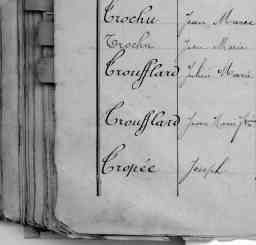 Trochu Jean Marie
Trochu Jean Marie
Troufflard Julien Marie
Troufflard Jean
Tropée Joseph